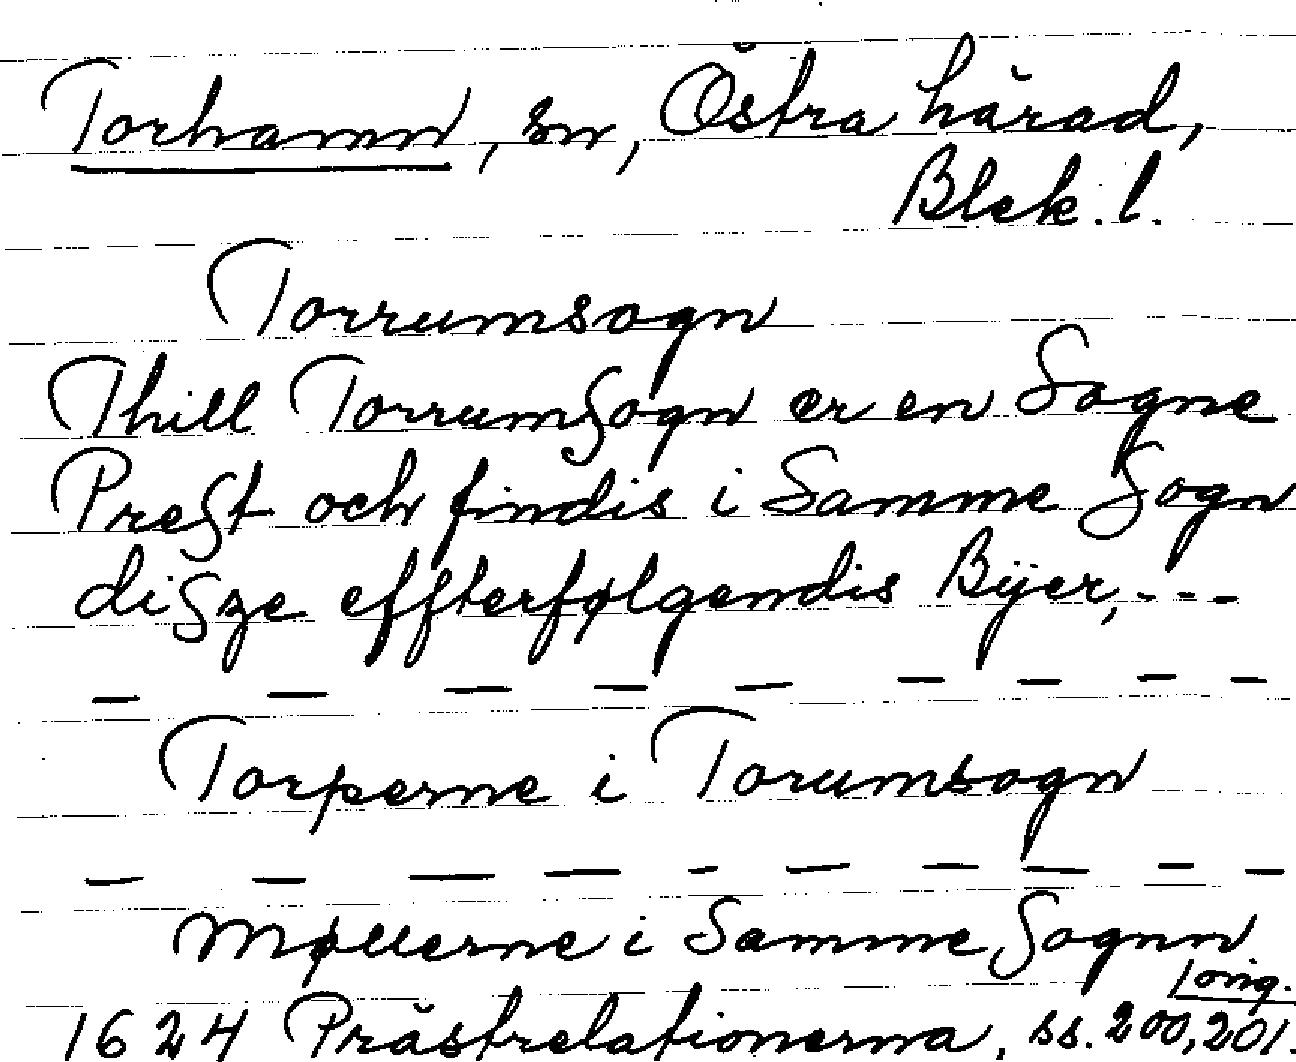 Torhamn, sn, Östra härad,
Blek. l.
Torrumsogn
Thill TorrumSogn er en Sogne
PreSt och findis i Samme Sogn
diSze effterfølgendis Bÿer, ---
— — — — — — — — —
Torperne i Torumsogn
— — — — — - — — — — —
Møllerne i Samme Sognn
1624 Prästrelationerna, ss. 200, 201. / orig.